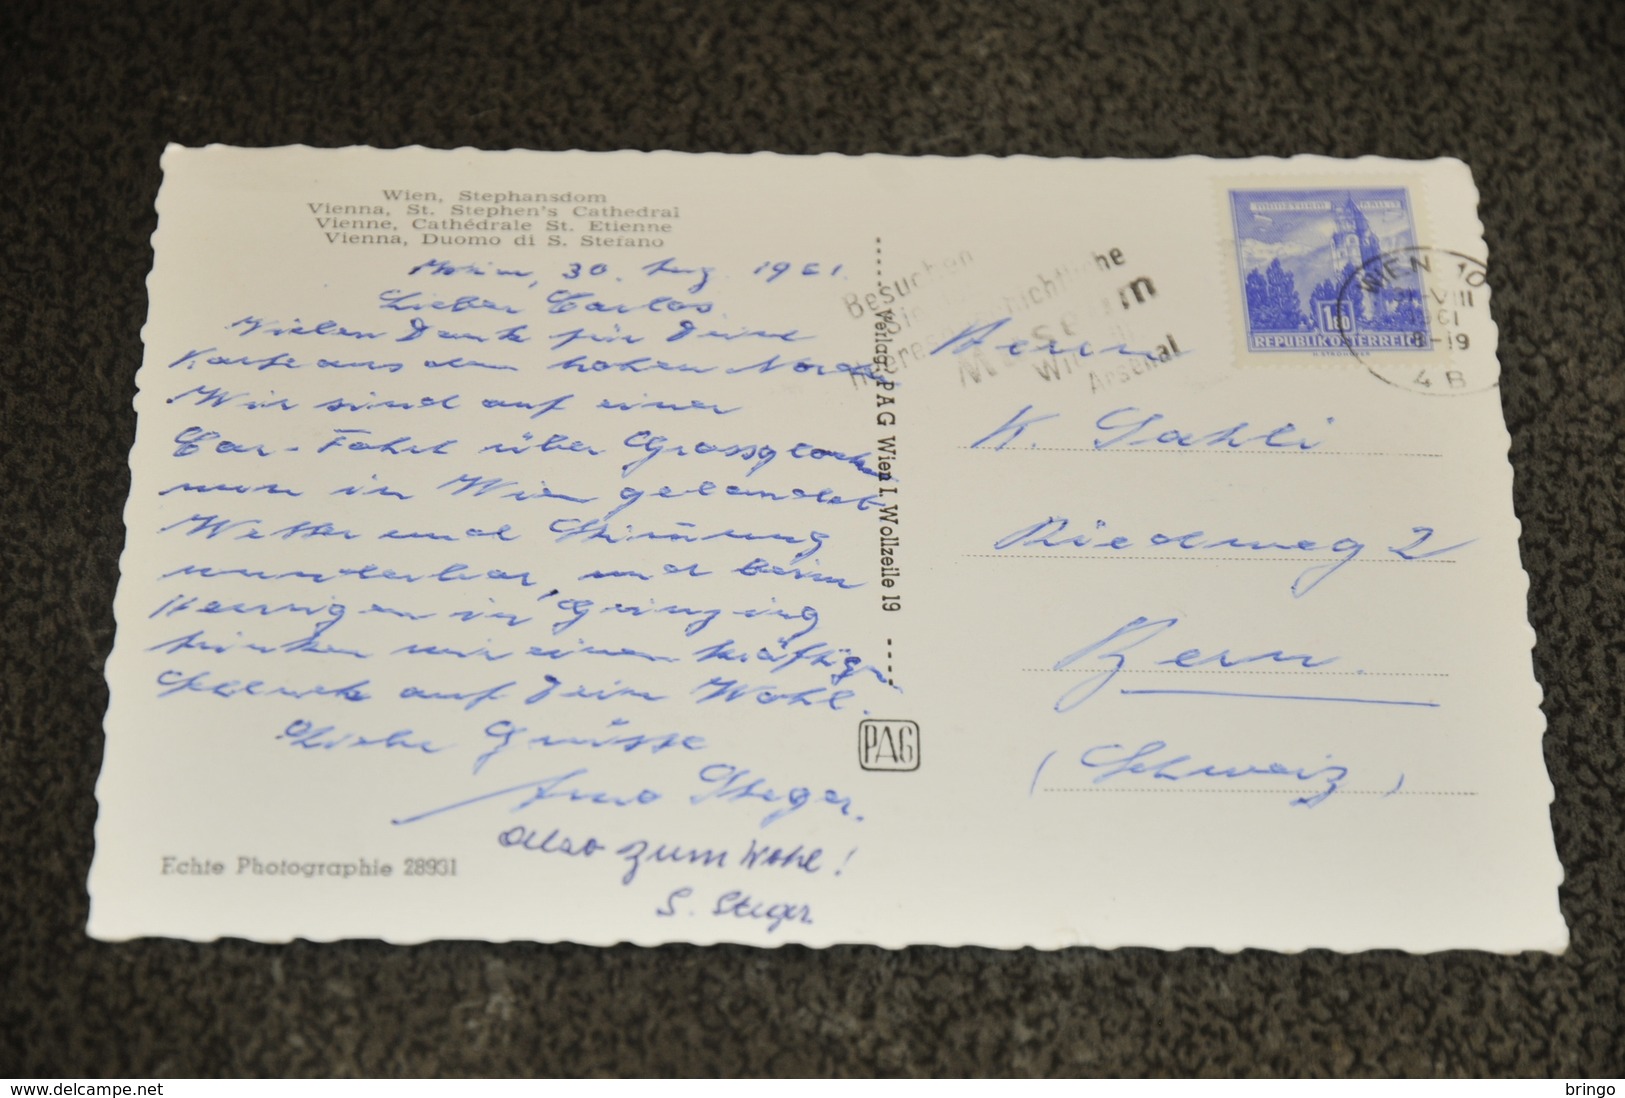 Wien, Stephansdom
Vienna, St. Stephen's Cathedral
Vienne, Cathédrale St. Etienne
Vienna, Duomo di S. Stefano
Wien, 30. Aug. 1961.
Lieber Carlos
Vielen Dank für Deine
Karte aus dem hohen Norden
Wir sind auf einer
Car-Fahrt über Grossglockner
nun in Wien gelandet
Wetter und Stimmung
wunderbar, und beim
Heurigen in Grinzing
trinken wir einen kräftigen
Schluck auf Dein Wohl.
Liebe Grüsse
Steger.
Also zum Wohl!
S. Steger.
Echte Photographie 28931
Verlag: PAG Wien I. Wollzeile 19
PAG
Besuchen
Sie
Museum
Wien
Arsenal
REPUBLIK ÖSTERREICH
WIEN 10
VIII
1961
8-19
4 B
Herrn
K. Sahli
Riedweg 2
Bern.
(Schweiz)
www.delcampe.net
bringo